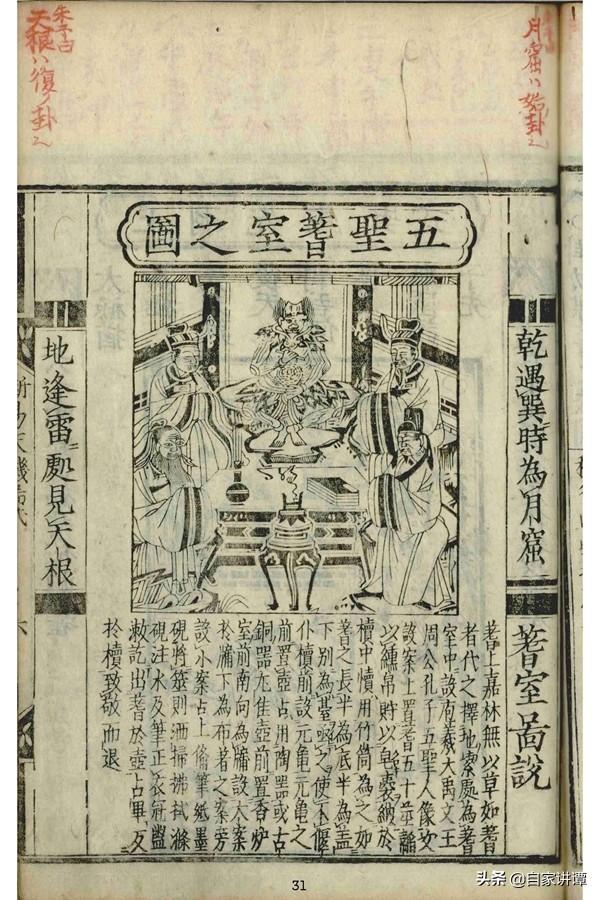 月窟ハ姤卦
朱子曰
天根ハ復ノ卦
五聖蓍室之圖
乾遇巽時為月窟
蓍室啚說
蓍上嘉林無以草如蓍
者代之擇地索處為蓍
室中設宓羲大禹文王
周公孔子五聖人像次
設案上置蓍五十莖韜
以纁帛貯以皂囊納於
櫝中櫝用竹筒為之如
蓍之長半為底半為盖
下別為臺函之使不偃
仆櫝前設元龜元龜之
前置壺占用陶器或古
銅器尤佳壺前置香炉
室前南向為牖設大案
於牖下為布蓍之案旁
設小案占上俻筆紙墨
硯將筮則洒掃拂拭滌
硯注水及筆正衣冠盥
漱訖出蓍於壺占畢反
於櫝致敬而退
地逢雷處見天根
31
头条 @自家讲谭